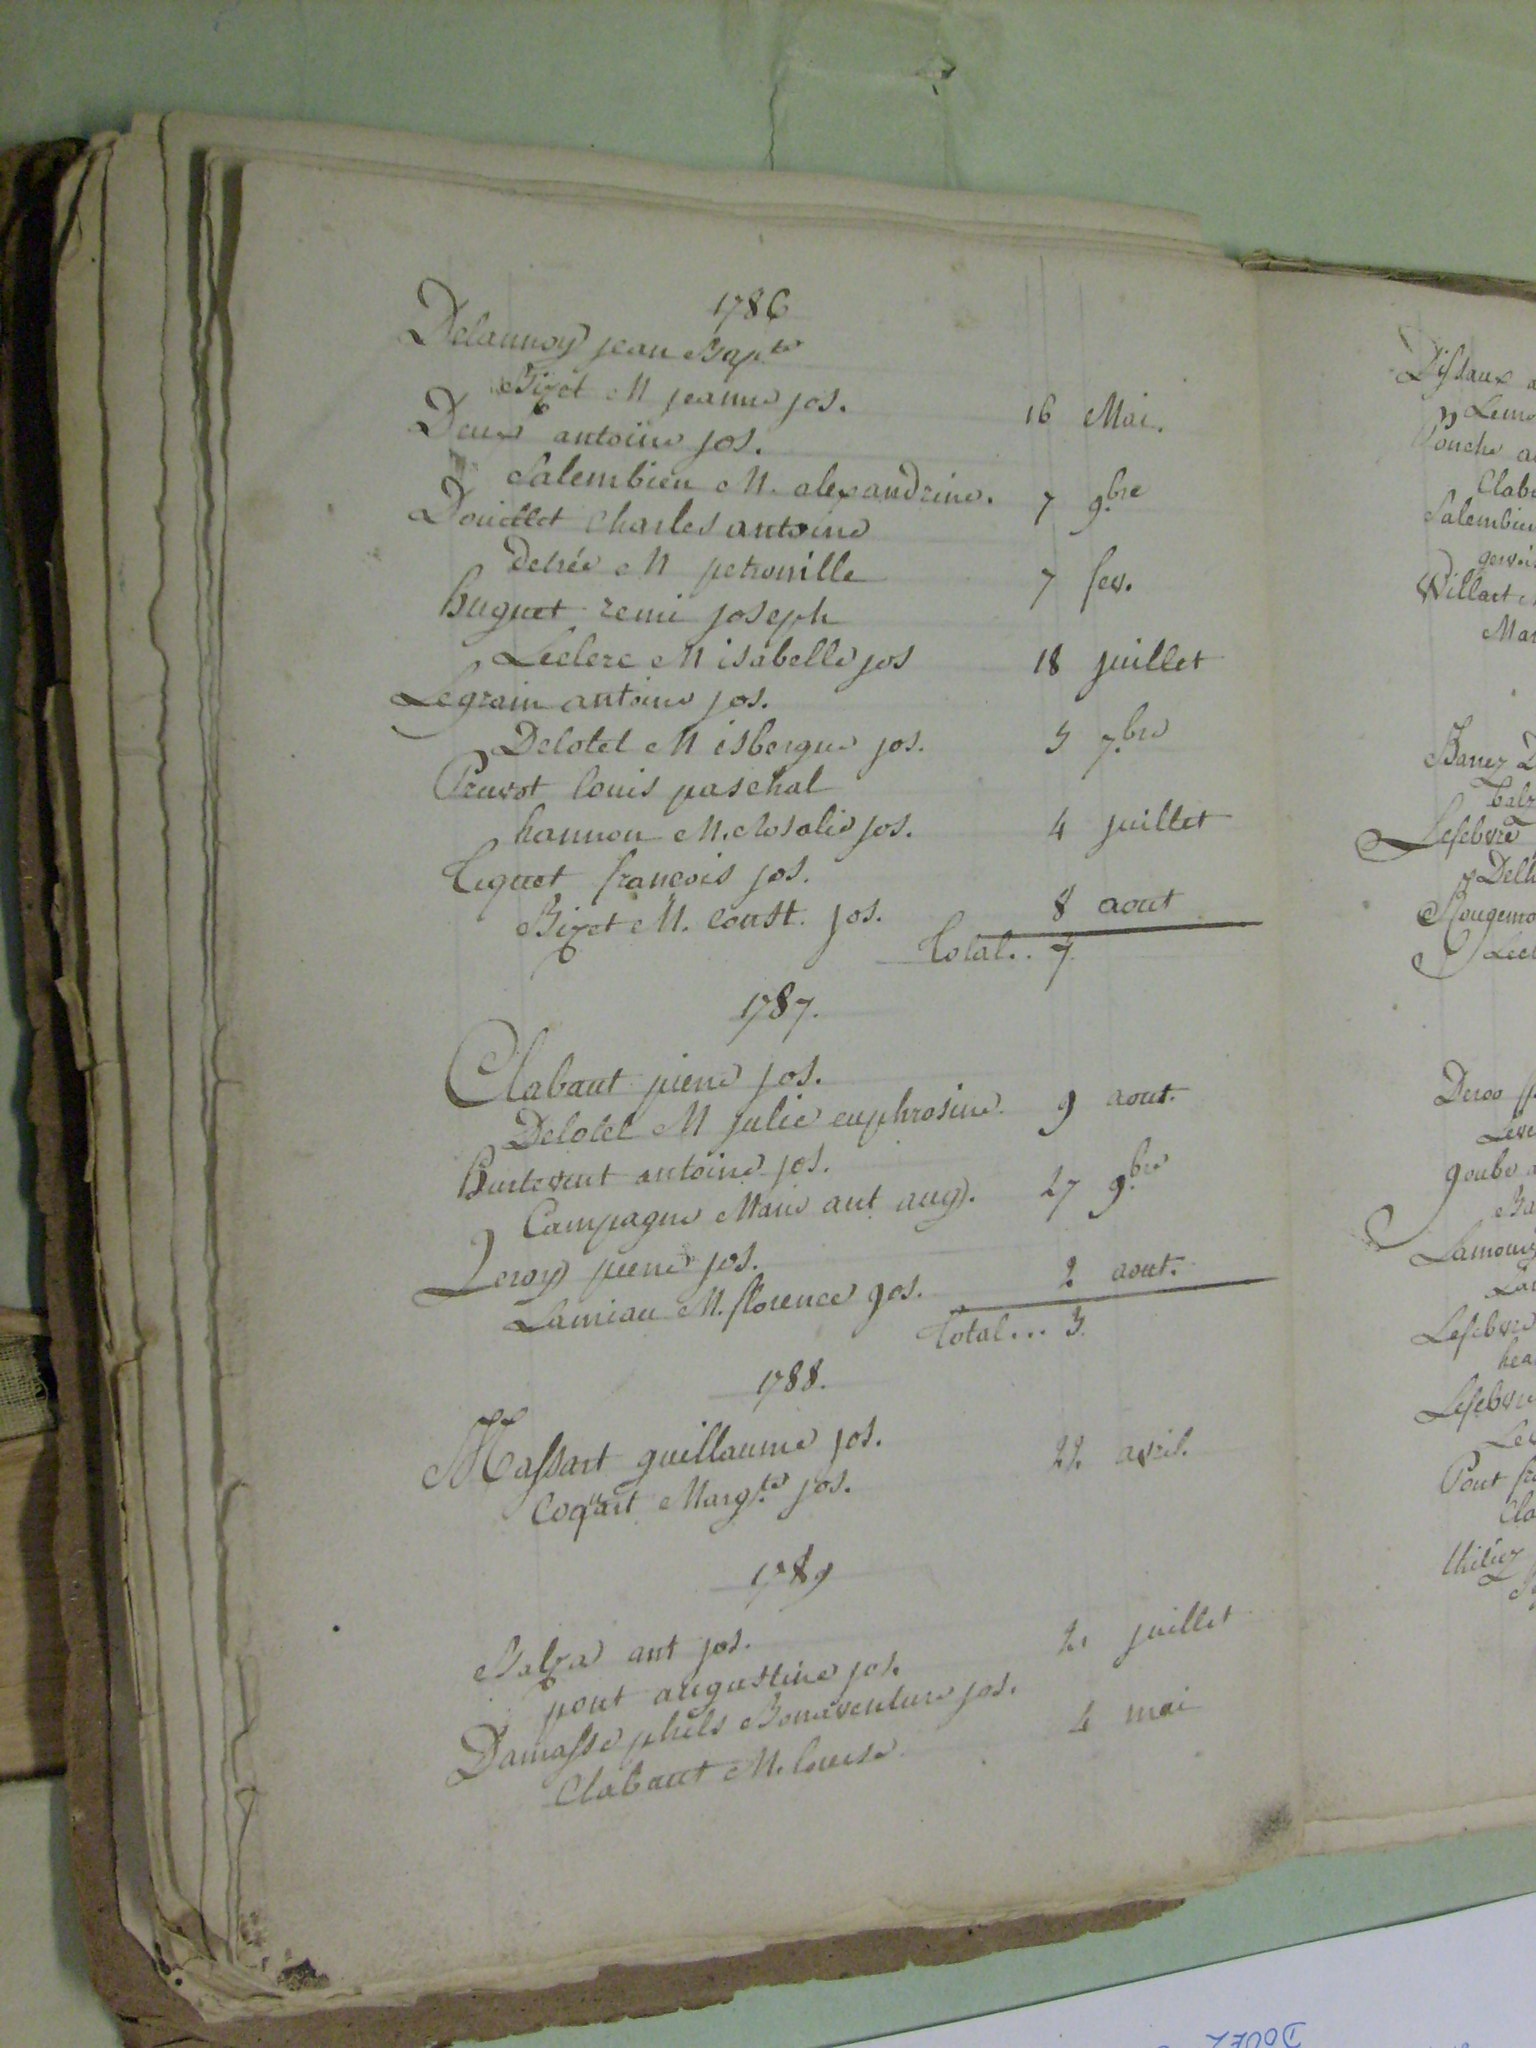 1786
Delannoy jean Bapte
Bizet M jeanne jos. 16 Mai.
Deux antoine jos.
Salembien M. alexandrine. 7 9bre
Douillet Charles antoine
Detrée M petronille 7 fev.
huguet remi joseph
Leclerc M isabelle jos 18 juillet
Legrain antoine jos.
Delotel M isbergue jos. 5 7bre
Pruvot louis paschal
hannon M. Rosalie jos. 4 juillet
Tiquet françois jos.
Bizet M. Const. jos. 8 aout
Total.. 7.
1787.
Clabaut pierre jos.
Delotel M julie euphrosine. 9 aout.
hurtevent antoine jos.
Campagne Marie ant aug. 27 9bre
Leroy pierre jos.
Lamiau M. florence jos. 2 aout.
Total... 3.
1788.
Massart guillaume jos.
Coqart Margte jos. 22 avril.
1789
Balza ant jos.
pont augustine jos. 21 juillet
Damasse phils Bonaventure jos.
Clabaut M. louise 4 mai
Dissaux
Lemo
Pouche
Clab
Salembien
gervoi
Willart
Mar
Banez
balz
Lefebvre
Delh
Rougemo
Lecl
Deroo
Leve
goube
Ba
Lamou
Lefebvre
hea
Lefebvre
Pont fr
Cla
thiliez
DOUEZ